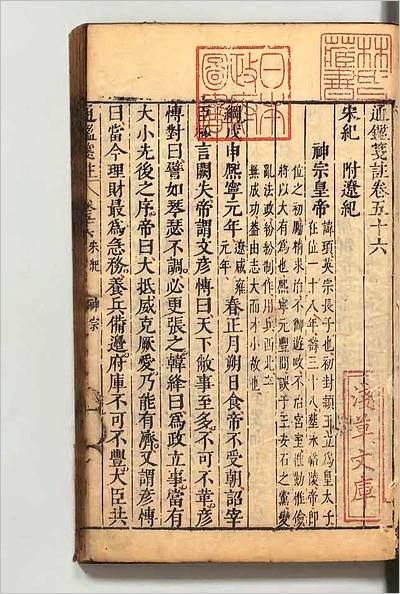 通鑑箋註卷五十六
宋紀　附遼紀
神宗皇帝
諱頊英宗長子也初封潁王立為皇太子
在位一十八年壽三十八塟永裕陵帝即
位之初勵精求治不御遊畋不治宮室惟勤惟儉
將以大有為也熙寧元豐間誤于王安石之黨變
亂法政紛紛制作用兵西北二
無成功蓋由志大而才小故也
綱戊申熙寧元年 遼咸雍 元年 春正月朔日食帝不受朝詔宰
臣極言闕失帝謂文彥博曰天下敝事至多不可不革彥
博對曰譬如琴瑟不調必更張之韓絳曰為政立事當有
大小先後之序帝曰大抵威克厥愛乃能有濟又謂彥博
曰當今理財最為急務養兵備邊府庫不可不豐大臣共
通鑑箋註 宋紀 神宗
林氏藏書
日本政府圖書
淺草文庫